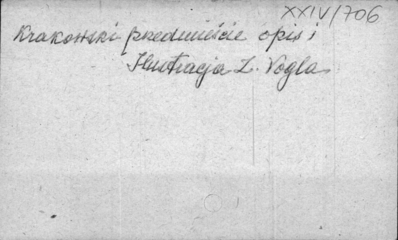 XXIV/706
Krakowski przedmieście opis i
Ilustracja Z. Vogla